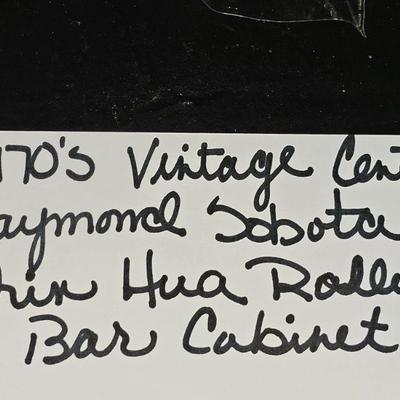 970's Vintage Cent
aymond Sobota
hin Hua Rollo
Bar Cabinet